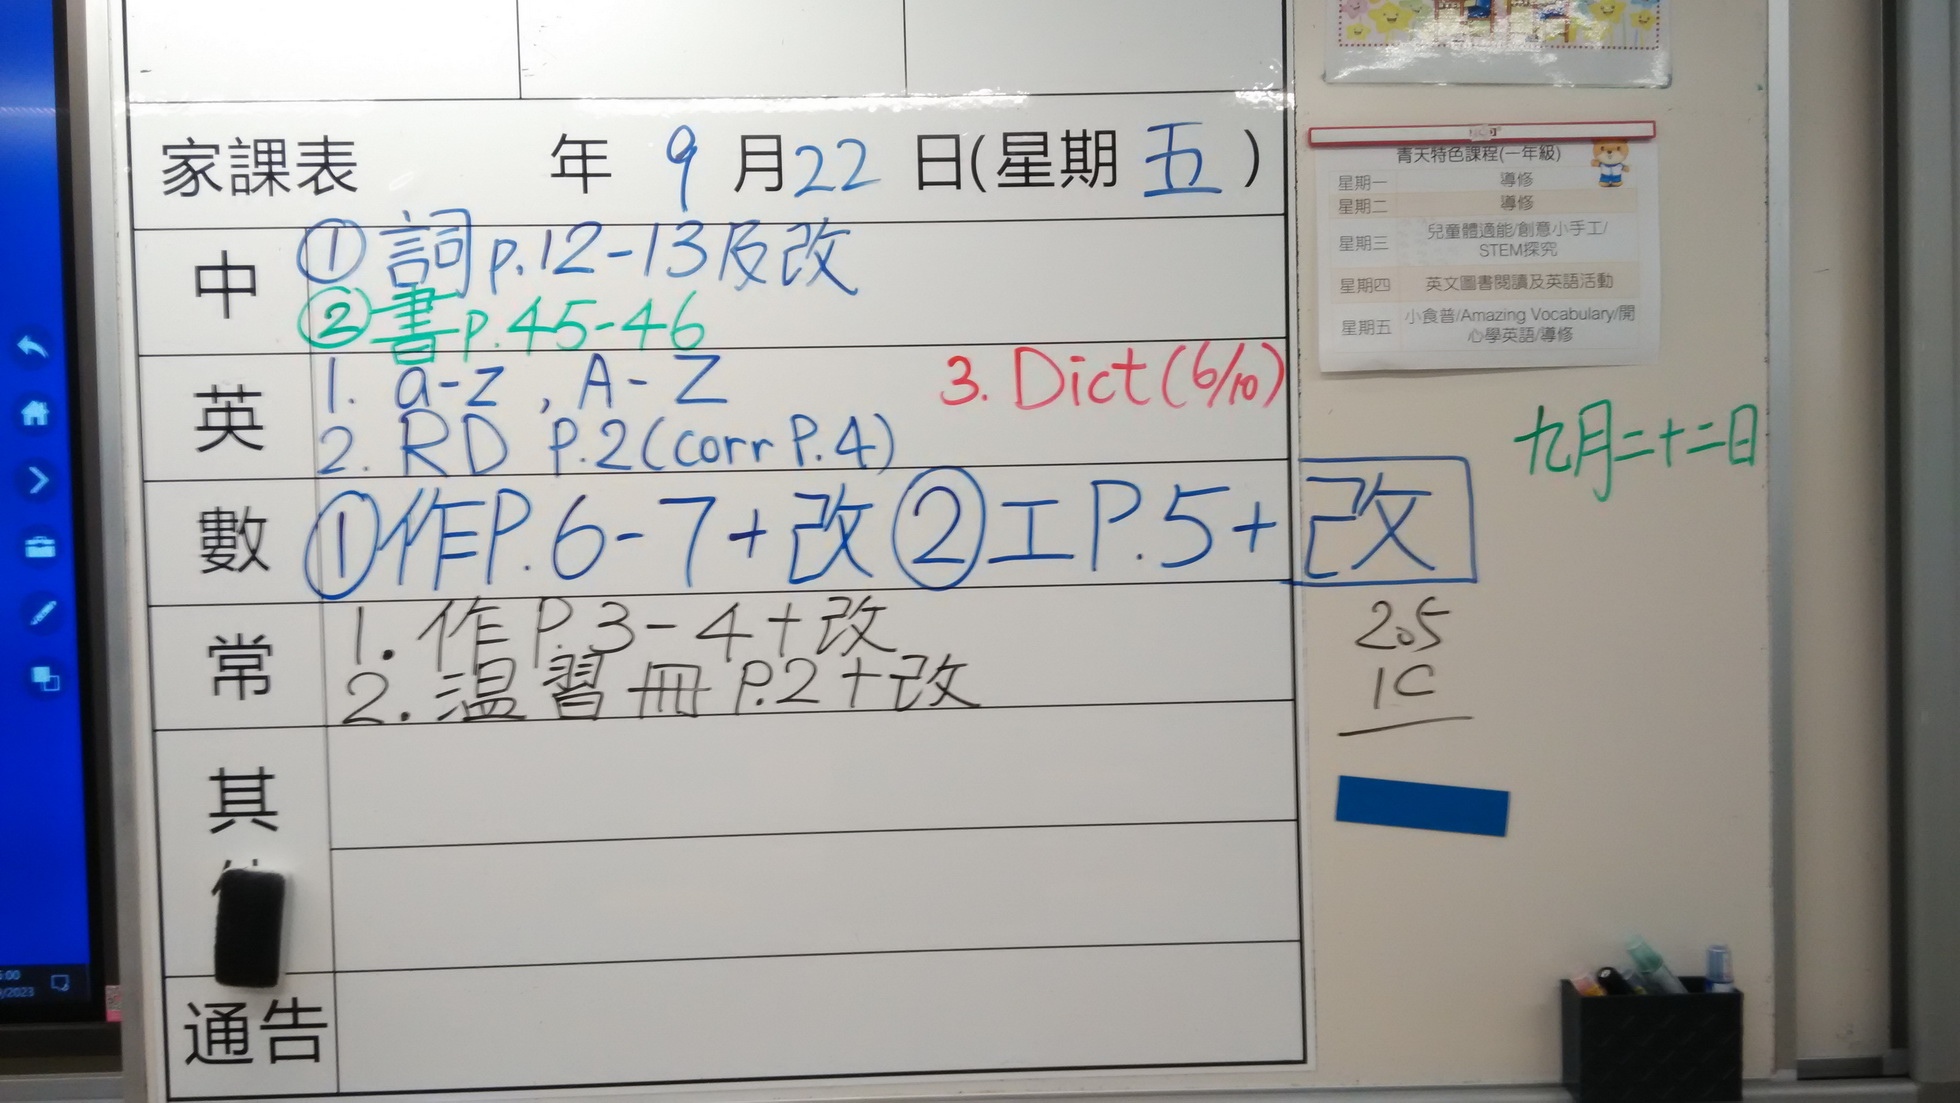 家課表 年 9 月 22 日(星期 五 )
中
① 詞 p.12-13及改
② 書 p.45-46
英
1. a-z , A-Z
3. Dict (6/10)
2. RD P.2 (corr P.4)
數 ①作P.6-7+改 ②工P.5+改
常
1. 作 P.3-4+改
2. 温習冊 P.2+改
其
通告
青天特色課程(一年級)
星期一 導修
星期二 導修
星期三 兒童體適能/創意小手工/
STEM探究
星期四 英文圖書閱讀及英語活動
星期五 小食普/Amazing Vocabulary/開
心學英語/導修
九月二十二日
205
1C